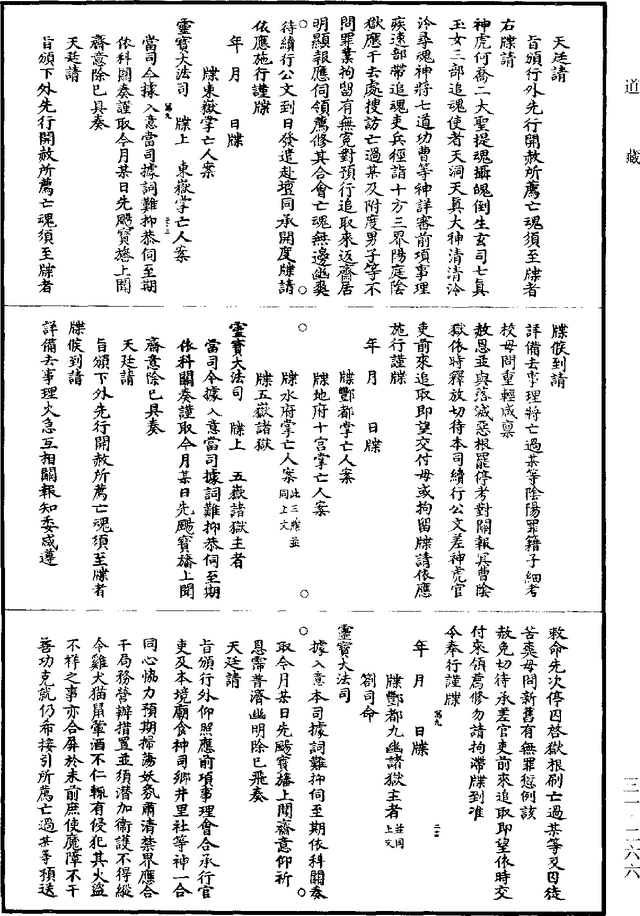 道藏
天廷請
旨頒行外先行開赦所薦亡魂須至牒者
右牒請
神虎何喬二大聖提魂攝魄倒生玄司七真
玉女三部追魂使者天洞天真大神清清泠
泠尋魂神將七道功曹等神詳審前項事理
疾速部帶追魂吏兵徑詣十方三界陽庭陰
獄應干去處搜訪亡過某及附度男子等不
問罪業拘留有無冤對預行追取來返齋居
明顯報應伺領薦修其合會亡魂無邊幽爽
待續行公文到日發遣赴壇同承開度牒請
依應施行謹牒
年 月 日牒
牒東嶽掌亡人案
靈寶大法司 牒上 東嶽掌亡人案
當司今據入意當司據詞難抑恭伺至期
依科關奏謹取今月某日先颺寶旛上聞
齋意除已具奏
天廷請
旨頒下外先行開赦所薦亡魂須至牒者
牒候到請
詳備去事理將亡過某等陰陽罪籍子細考
校毋問重輕咸稟
赦恩並與落滅惡根罷停考對關報冥曹陰
獄依時釋放切待本司續行公文差神虎官
吏前來追取即望交付毋或拘留牒請依應
施行謹牒
年 月 日牒
牒酆都掌亡人案
牒地府十宮掌亡人案
牒水府掌亡人案 此三牒並同上文
牒五嶽諸獄
靈寶大法司 牒上 五嶽諸獄主者
當司今據入意當司據詞難抑恭伺至期
依科關奏謹取今月某日先颺寶旛上聞
齋意除已具奏
天廷請
旨頒下外先行開赦所薦亡魂須至牒者
牒候到請
詳備去事理火急互相關報知委咸遵
敕命先次停囚啓獄根刷亡過某等又因徒
苦爽毋問新舊有無罪愆例該
赦免切待承差官吏前來追取即望依時交
付來領薦修勿請拘滯牒到准
令奉行謹牒
年 月 日牒
劉司命
牒酆都九幽諸獄主者 並同上文
靈寶大法司
據入意本司據詞難抑伺至期依科關奏
取今月某日先颺寶旛上聞齋意仰祈
恩霈普濟幽明除已飛奏
天廷請
旨頒行外仰照應前項事理會合承行官
吏及本境廟食神司鄉井里社等神一合
同心恊力預期掃蕩妖氛肅清禁界應合
干局務營辦措置並須潜加衛護不得縱
令雞犬猫鼠葷酒不仁輙有侵犯其火盜
不祥之事亦合屏於未前庶使魔障不干
善功克就仍希接引所薦亡過某等預送
三一·二六六